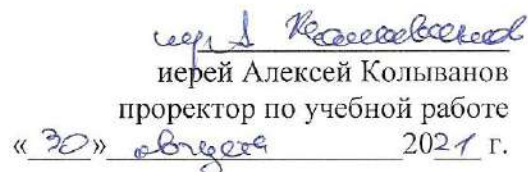 иер А Колыванов
иерей Алексей Колыванов
проректор по учебной работе
« 30 » августа 2021 г.